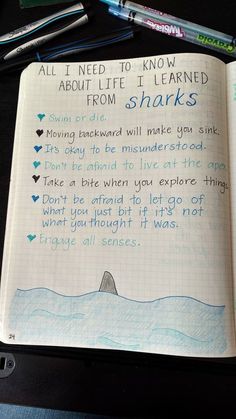 ALL I NEED TO KNOW
ABOUT LIFE I LEARNED
FROM sharks
Swim or die.
Moving backward will make you sink.
It's okay to be misunderstood.
Don't be afraid to live at the apex.
Take a bite when you explore things.
Don't be afraid to let go of
what you just bit if it's not
what you thought it was.
Engage all senses.
24